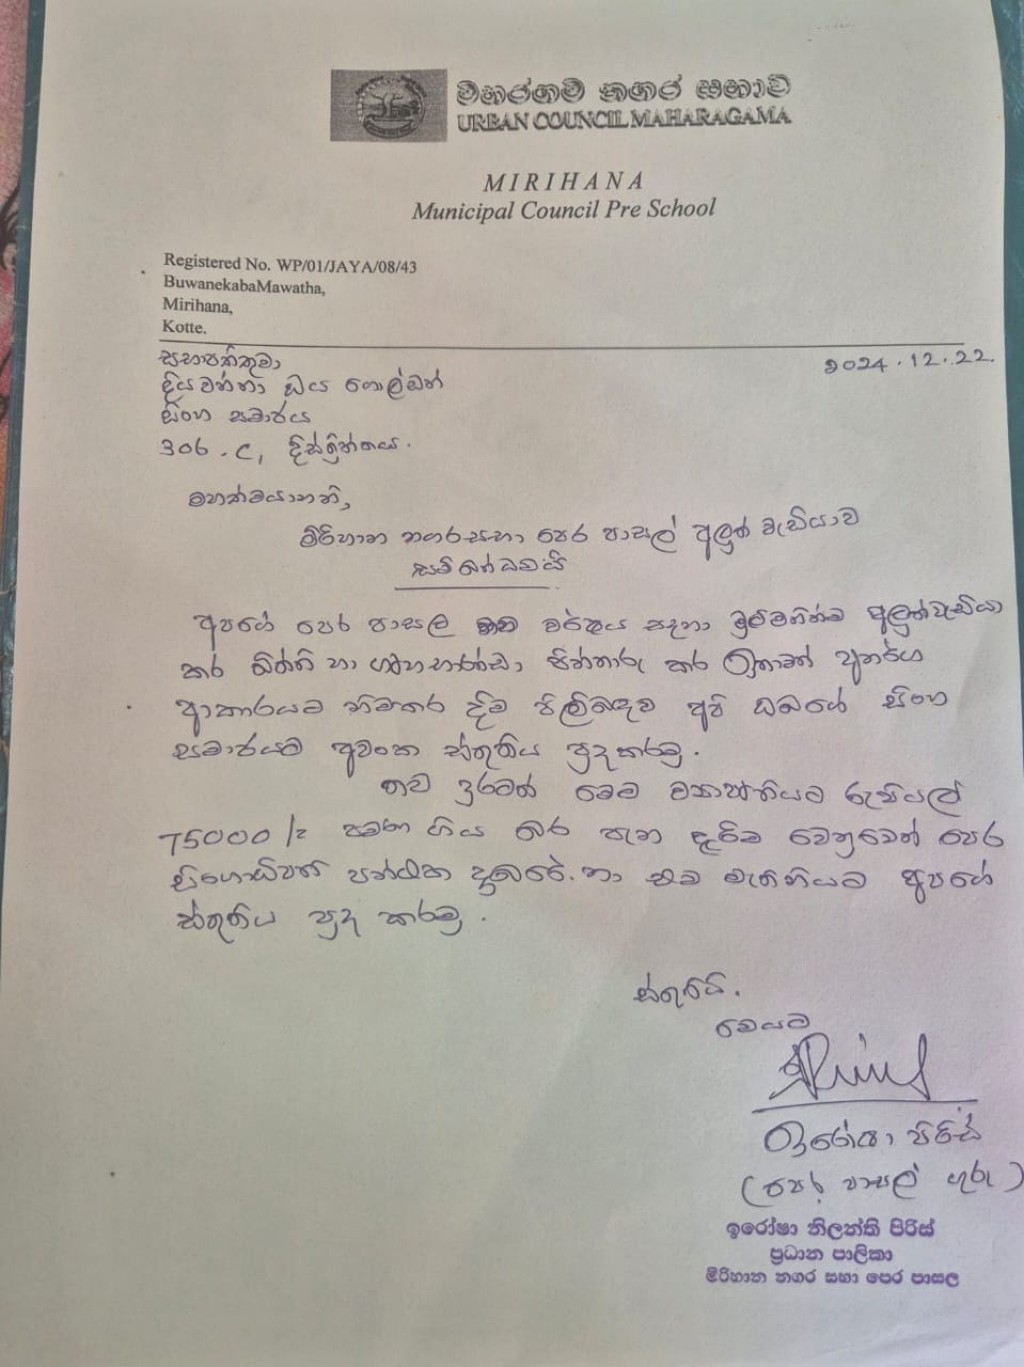 මහරගම නගර සභාව
URBAN COUNCIL MAHARAGAMA
MIRIHANA
Municipal Council Pre School
Registered No. WP/01/JAYA/08/43
BuwanekabaMawatha,
Mirihana,
Kotte.
සභාපතිතුමා
2024.12.22.
දියවන්නා ඩය ගෝල්ඩන්
සිංහ සමාජය
306.C, දිස්ත්‍රික්කය.
මහත්මයාණනි,
මිරිහාන නගරසභා පෙර පාසල් අලුත් වැඩියාව
සම්බන්ධවයි
අපගේ පෙර පාසල නව වර්ෂය සඳහා මුළුමනින්ම අලුත්වැඩියා
කර බිත්ති හා ගෘහභාණ්ඩ පින්තාරු කර ඉතාමත් අනර්ඝ
ආකාරයට නිමකර දීම පිළිබඳව අපි ඔබගේ සිංහ
සමාජයට අවංක ස්තුතිය පුදකරමු.
තව දුරටත් මෙම ව්‍යාපෘතියට රුපියල්
75000/= පමණ ගිය බව පැන දැරීම වෙනුවෙන් පෙර
සභාධිපති හා එම මැතිනියට අපගේ
ස්තුතිය පුද කරමු.
ස්තුතියි.
මෙයට
ඉරෝෂා පිරිස්
(පෙර පාසල් ගුරු)
ඉරෝෂා තිලන්ති පිරිස්
ප්‍රධාන පාලිකා
මිරිහාන නගර සභා පෙර පාසල